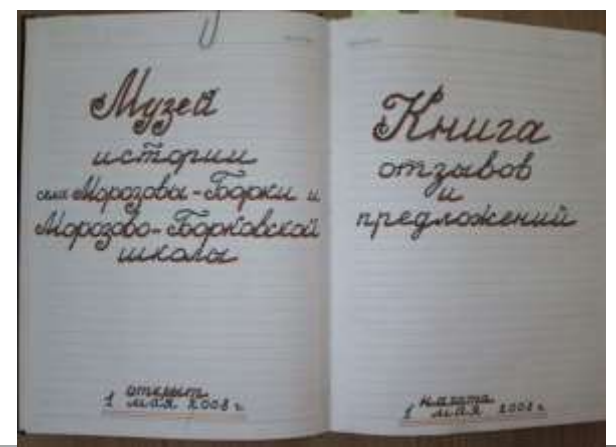 Музей
истории
села Морозовы-Борки и
Морозово-Борковской
школы
открыт
1 мая 2008 г.
Книга
отзывов
и
предложений
начата
1 мая 2008 г.